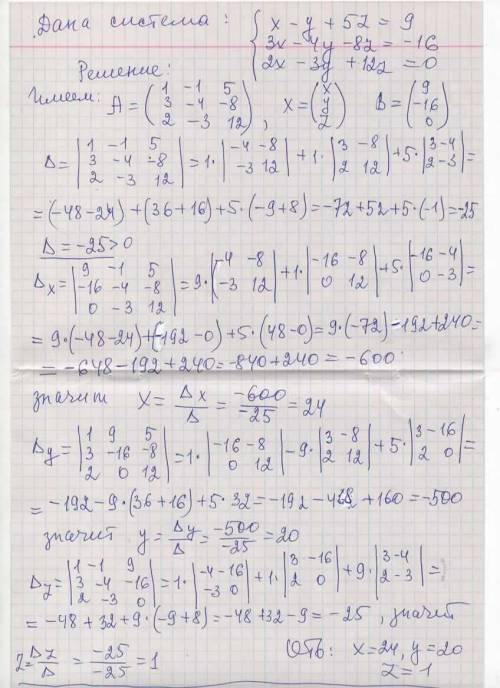 Дана система: { x - y + 5z = 9
3x - 4y - 8z = -16
2x - 3y + 12z = 0
Решение:
Имеем: A = (1 -1 5; 3 -4 -8; 2 -3 12), X = (x; y; z) B = (9; -16; 0)
Δ = |1 -1 5; 3 -4 -8; 2 -3 12| = 1·|-4 -8; -3 12| + 1·|3 -8; 2 12| + 5·|3 -4; 2 -3| =
= (-48-24) + (36+16) + 5·(-9+8) = -72+52+5·(-1) = -25
Δ = -25 > 0
Δx = |9 -1 5; -16 -4 -8; 0 -3 12| = 9·|-4 -8; -3 12| + 1·|-16 -8; 0 12| + 5·|-16 -4; 0 -3| =
= 9·(-48-24) + (-192-0) + 5·(48-0) = 9·(-72) - 192 + 240 =
= -648 - 192 + 240 = -840 + 240 = -600
значит X = Δx/Δ = -600/-25 = 24
Δy = |1 9 5; 3 -16 -8; 2 0 12| = 1·|-16 -8; 0 12| - 9·|3 -8; 2 12| + 5·|3 -16; 2 0| =
= -192 - 9·(36+16) + 5·32 = -192 - 468 + 160 = -500
значит y = Δy/Δ = -500/-25 = 20
Δz = |1 -1 9; 3 -4 -16; 2 -3 0| = 1·|-4 -16; -3 0| + 1·|3 -16; 2 0| + 9·|3 -4; 2 -3| =
= -48 + 32 + 9·(-9+8) = -48 + 32 - 9 = -25, значит
Z = Δz/Δ = -25/-25 = 1 Отв: x = 24, y = 20
z = 1